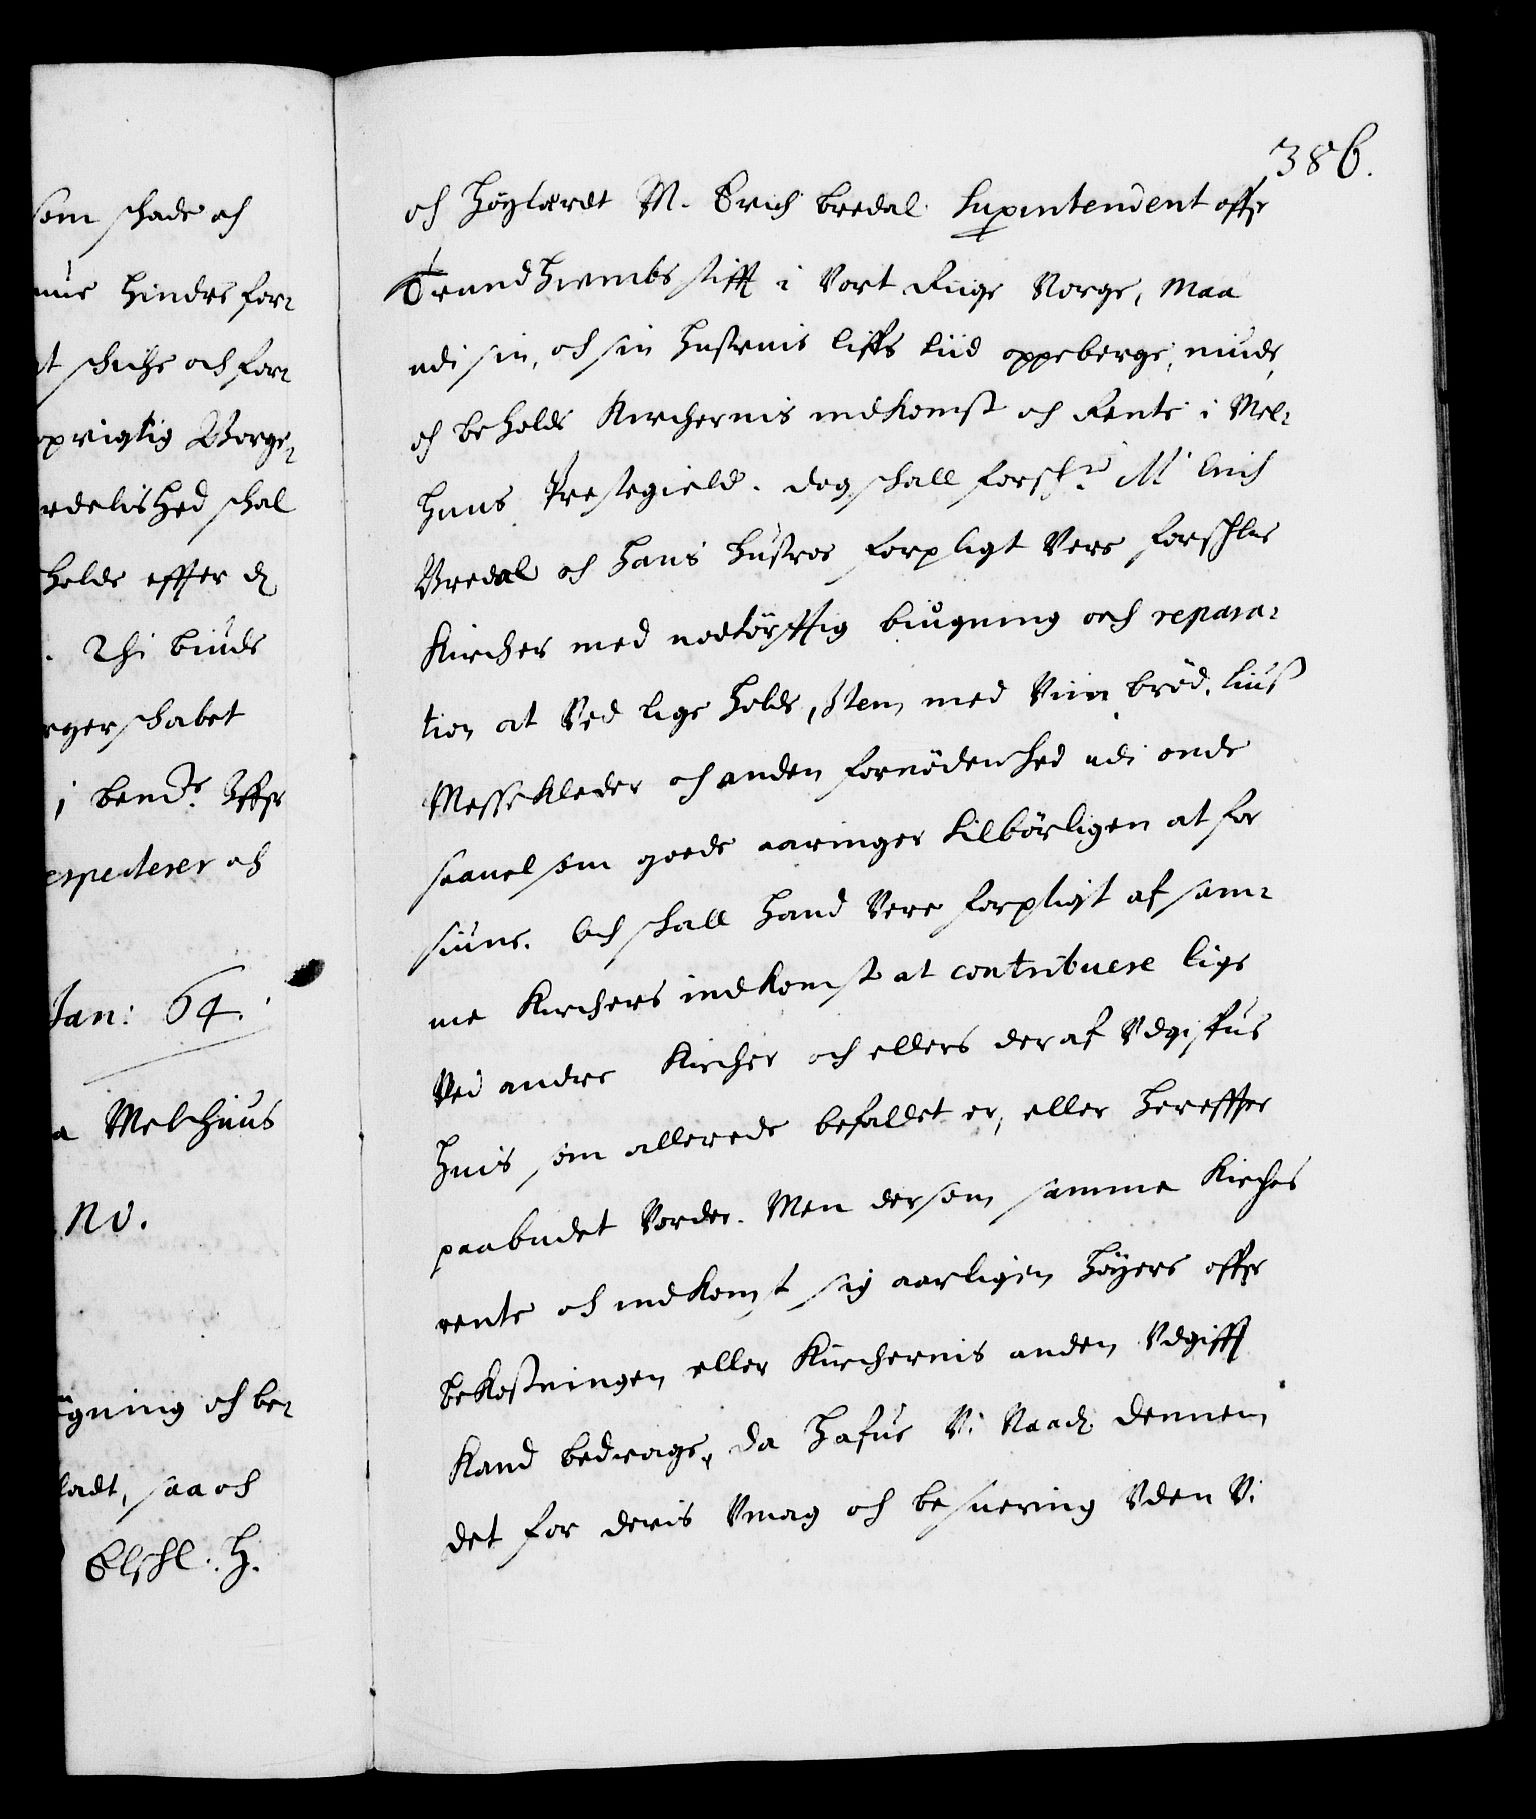 som schade och
hindre for¬
schiche och for¬
oprigtig Borge¬
schal
holde effter d
. Thi biude
schabet
i bemte: Offr
respecterer och
Jan: 64.
Melhuus
No.
gning och be¬
ladt, saa och
Elschl. H.
386.
och Høylærdt M. Erich Bredal Superintendent offr
Trundhiembs stifft i Vort Riige Norge, Maa
udi sin, och sin Hustruis liffs tiid oppeberge, niude,
och beholde Kirchernis indkomst och Rente i Mel¬
huus Prestegield. dog schall forschne M Erich
Bredal och Hans Hustroe forpligt Vere forschne
Kircher med nødtørfftig biugning och repara¬
tion at Ved lige holde, Item med Viin, brød, liuß
Messeklæder och anden fornødenhed udi onde
saauel som goede aaringer tilbørligen at for
siune. Och schall Hand Vere forpligt af sam¬
me Kirchers indkomst at contribuere lige
Ved andre Kircher och ellers deraf Udgifue
huis, som allerede befallet er, eller hereffter
paabudet Vorder. Men dersom samme Kirches
rente och indkomst sig aarligen høyere offr
bekostningen eller Kirchernis anden Udgifft
Kand bedrage, da Hafue Vi Naad: dennem
det for deris Umag och besuering Uden Vi